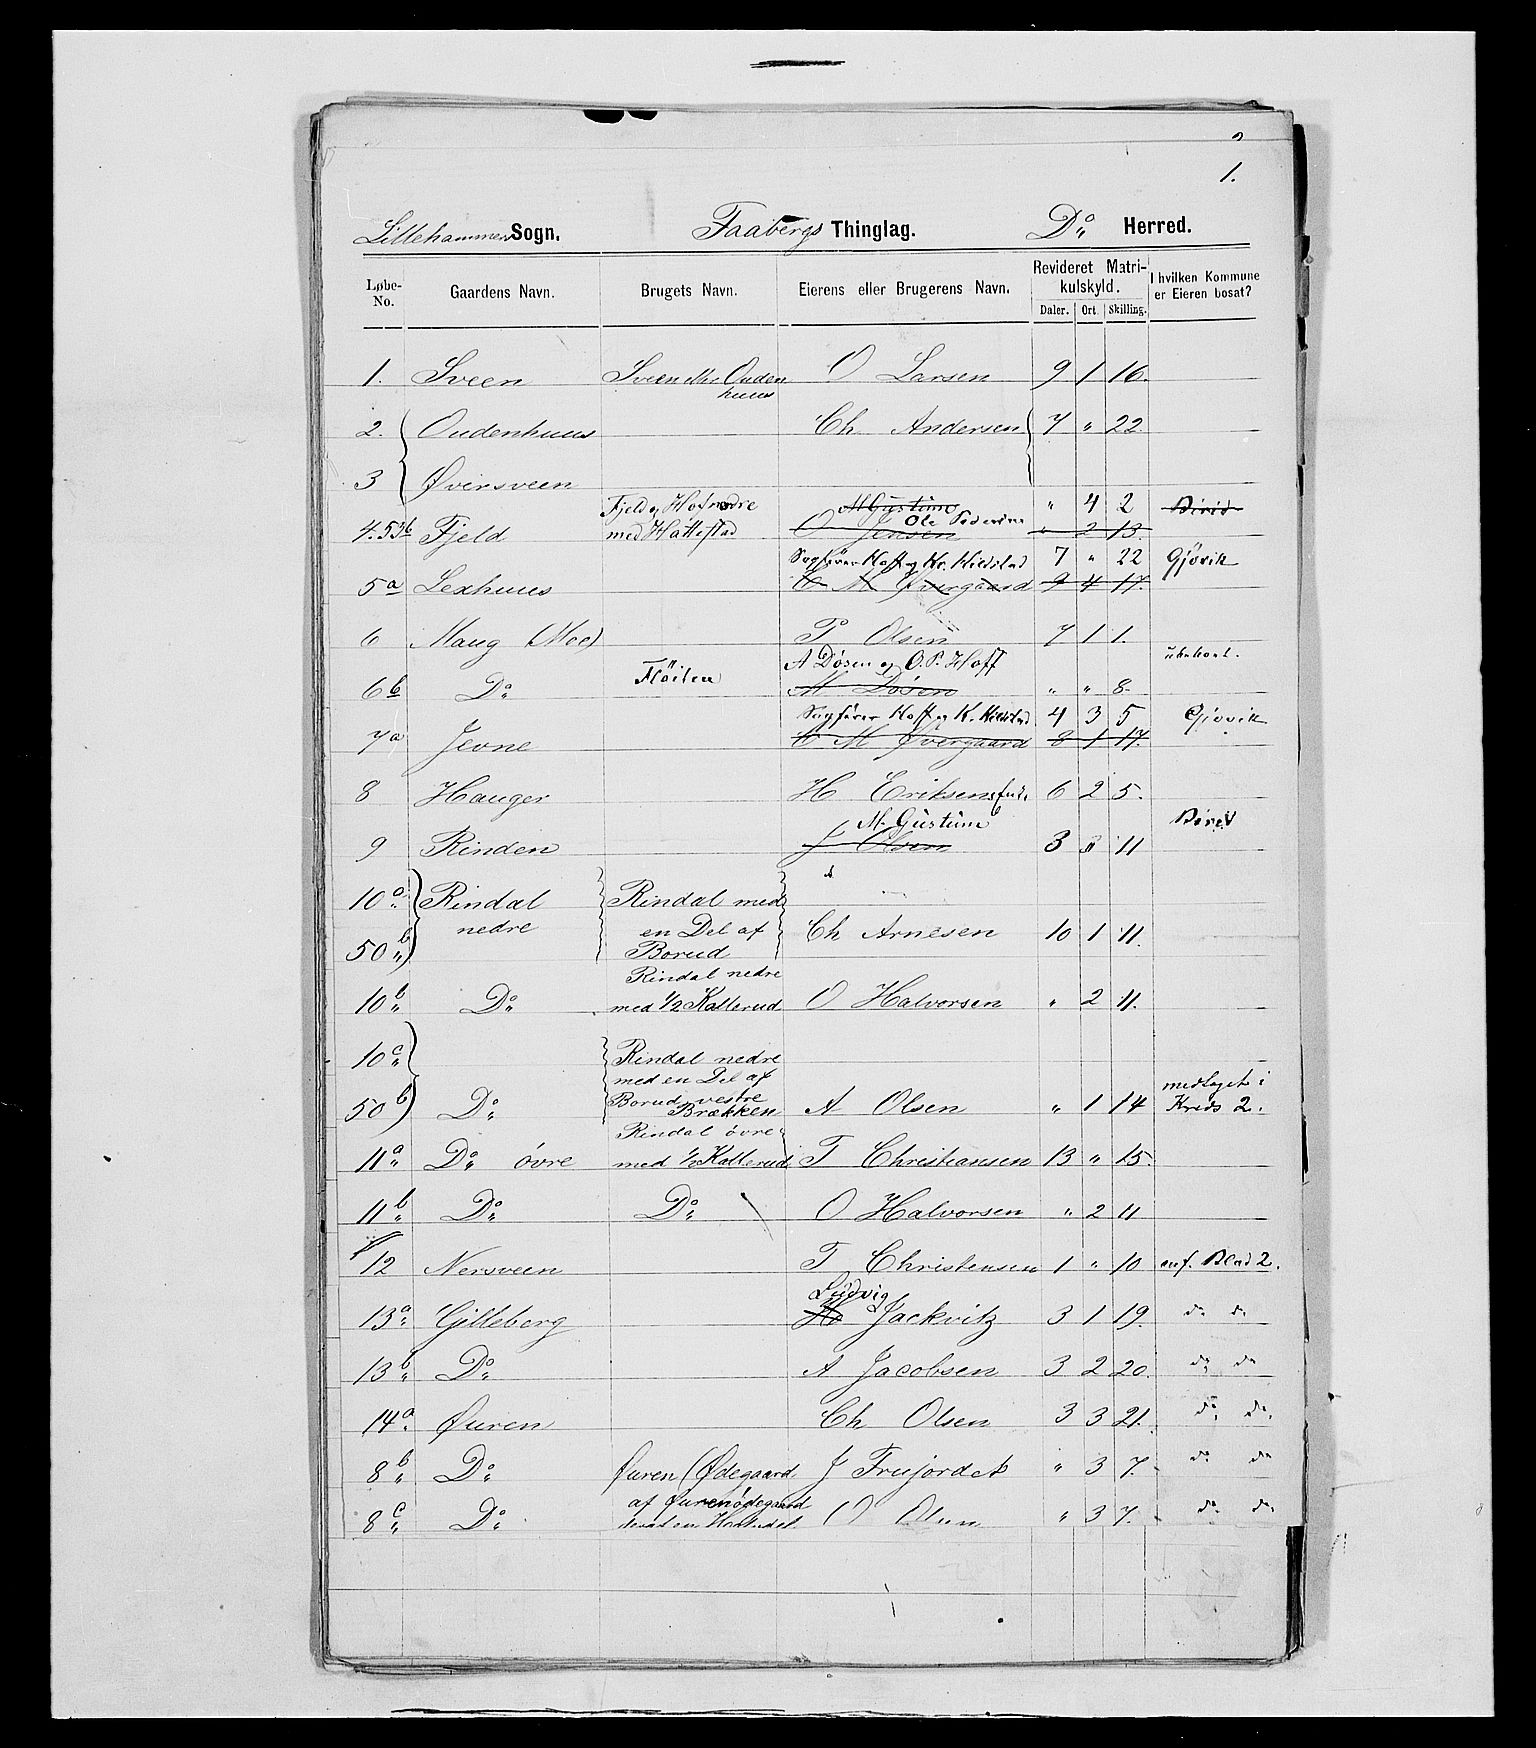 2
1.
Lillehammer Sogn. Faabergs Thinglag. Do Herred.
Løbe-No. Gaardens Navn. Brugets Navn. Eierens eller Brugerens Navn. Revideret Matrikulskyld. Daler. Ort. Skilling. I hvilken Kommune er Eieren bosat?
1. Sveen Sveen Ouden O Larsen 9 1 16.
huus
2. Oudenhuus Ch Andersen 7 " 22.
3 Øversveen
Fjeld og Hof nedre M Gustum " 4 2 Birid
Ole Pedersen
4. 53b Fjeld med Hattestad O Jensen " 2 13.
Sagfører Hoff og Kr. Hildstad 7 " 22 Gjøvik
5a Lexhuus C M Øvergaard 9 4 17.
6 Maug (Moe) P Olsen 7 1 1.
Fløiten A Dosen og O. P. Hoff
6b Do M Dosen " " 8.
Sagfører Hoff og K. Hildstad 4 3 5 Gjøvik
7a Jevne C M Øvergaard 8 1 17.
8 Hauger H Eriksen 6 2 5.
M. Gustum Birid
9 Rinden J Olsen 3 " 11
10a Rindal Rindal med
nedre en Del af Ch Arnesen 10 1 11.
50b Borud
Rindal nedre
10b Do med 1/2 Kallerud O Halvorsen " 2 11.
10c Rindal nedre
med en Del af medtaget i
50b Do Borud vestre A Olsen " 1 14 Kreds 2.
Brækken
Rindal øvre
11a Do øvre med 1/2 Kallerud T Christiansen 13 " 15.
11b Do Do O Halvorsen " 2 11
12 Nersveen T Christensen 1 " 10 anf. Blad 2.
Ludvig
13a Gilleberg H Jackvitz 3 1 19. do do
13b Do A Jacobsen 3 2 20. do do
14a Øuren Ch Olsen 3 3 21. do do
8b Do Øuren (Ødegaard J Trujordet " 3 7. do do
af Øurenødegaard
8c Do O Olsen " 3 7. do do